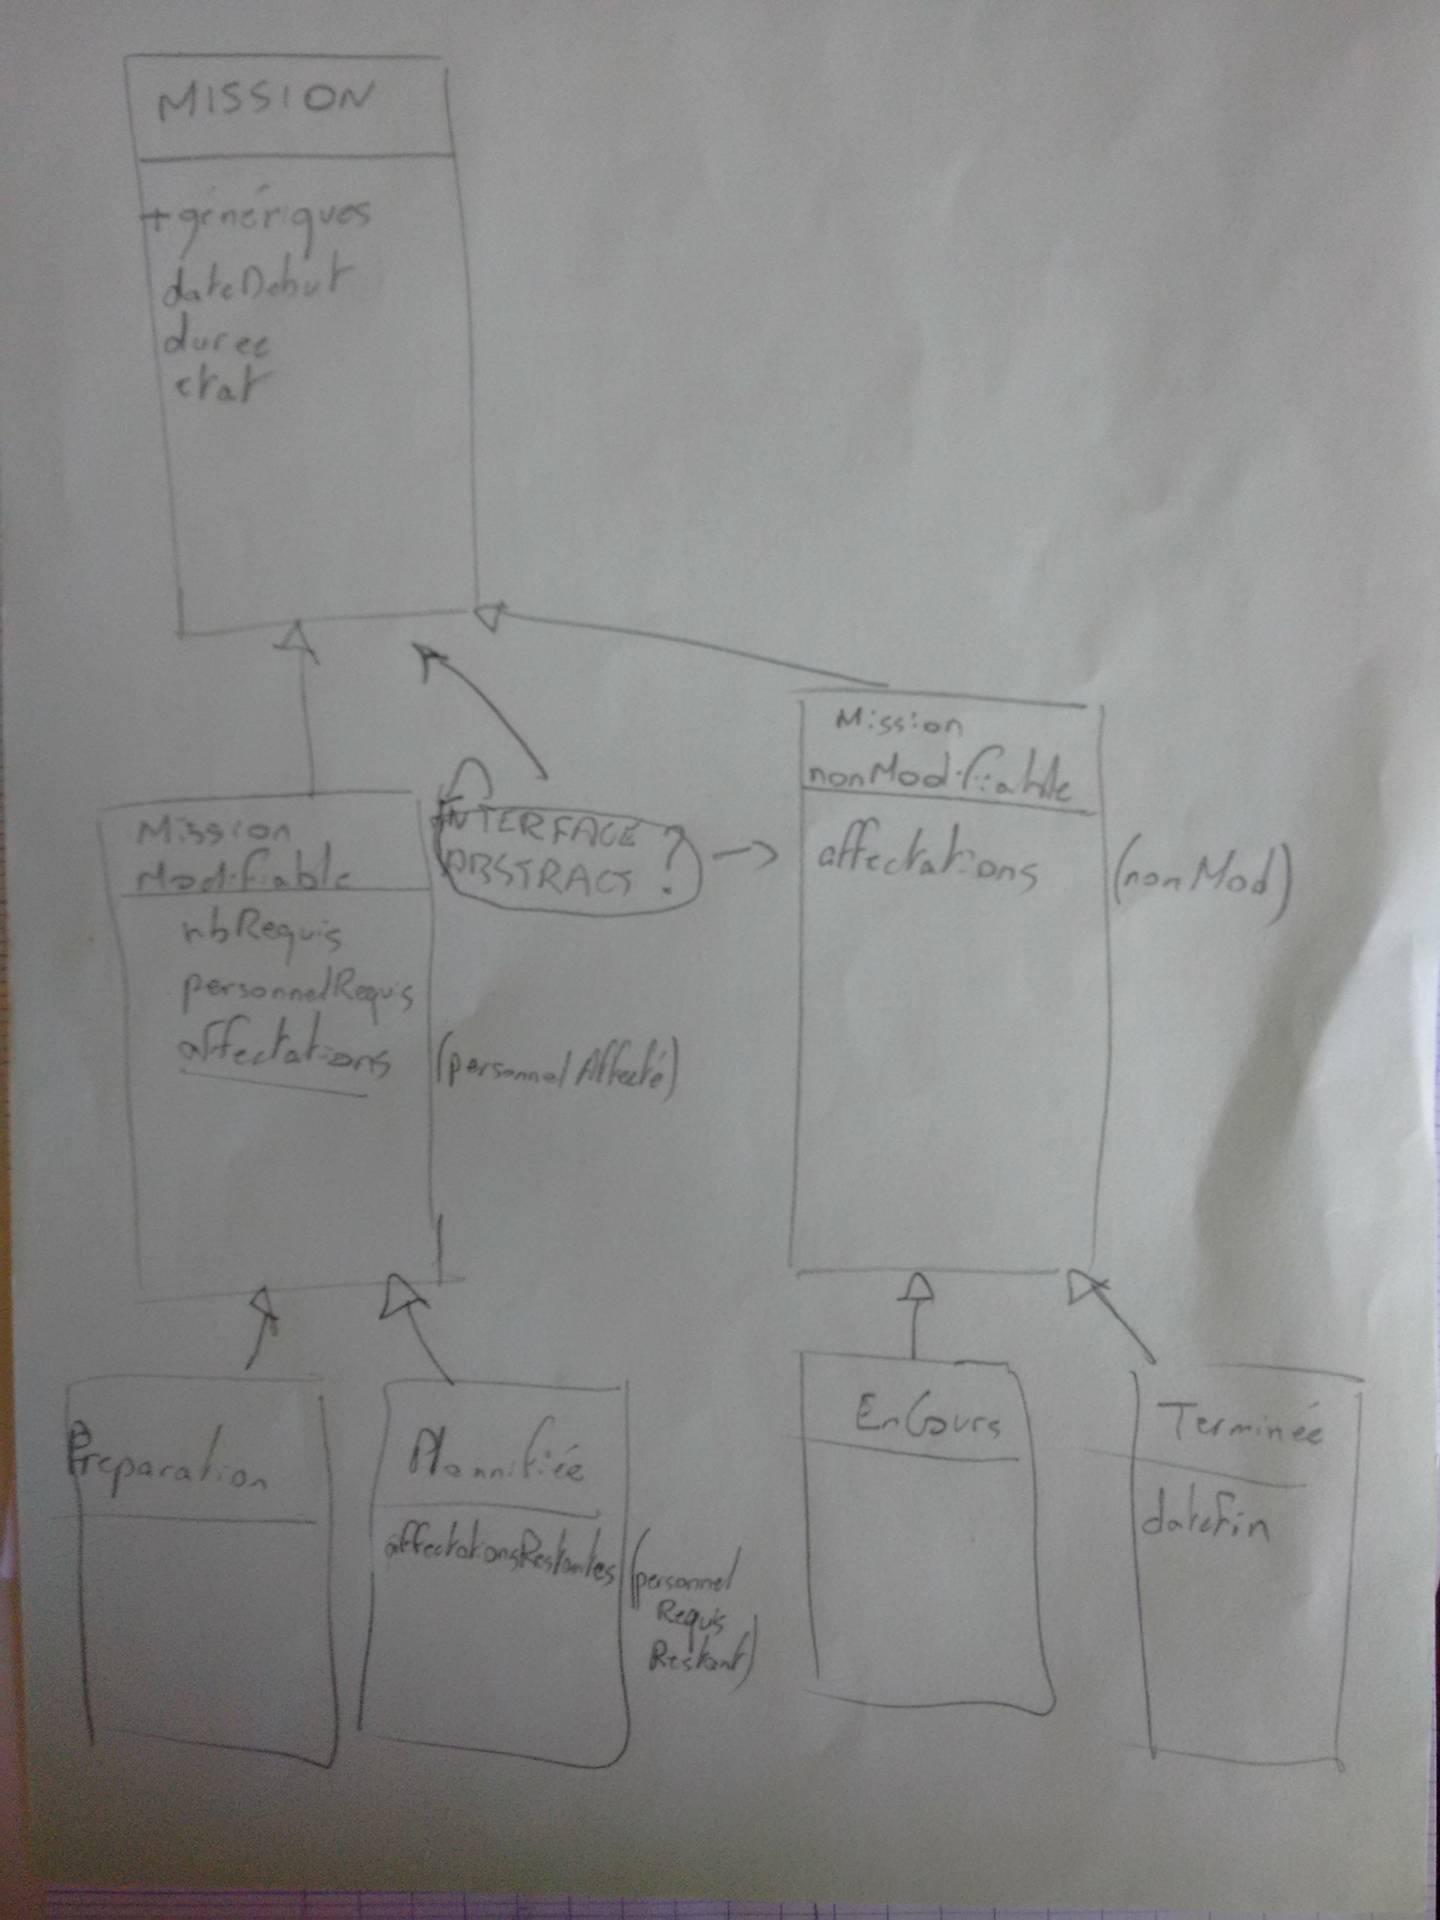 MISSION
+génériques
dateDebut
duree
etat
Mission
Modifiable
nbRequis
personnelRequis
affectations
(personnel Affecté)
INTERFACE ?
ABSTRACT
Mission
nonModifiable
affectations
(nonMod)
Preparation
Plannifiée
affectationsRestantes
(personnel
Requis
Restant)
EnCours
Terminée
dateFin